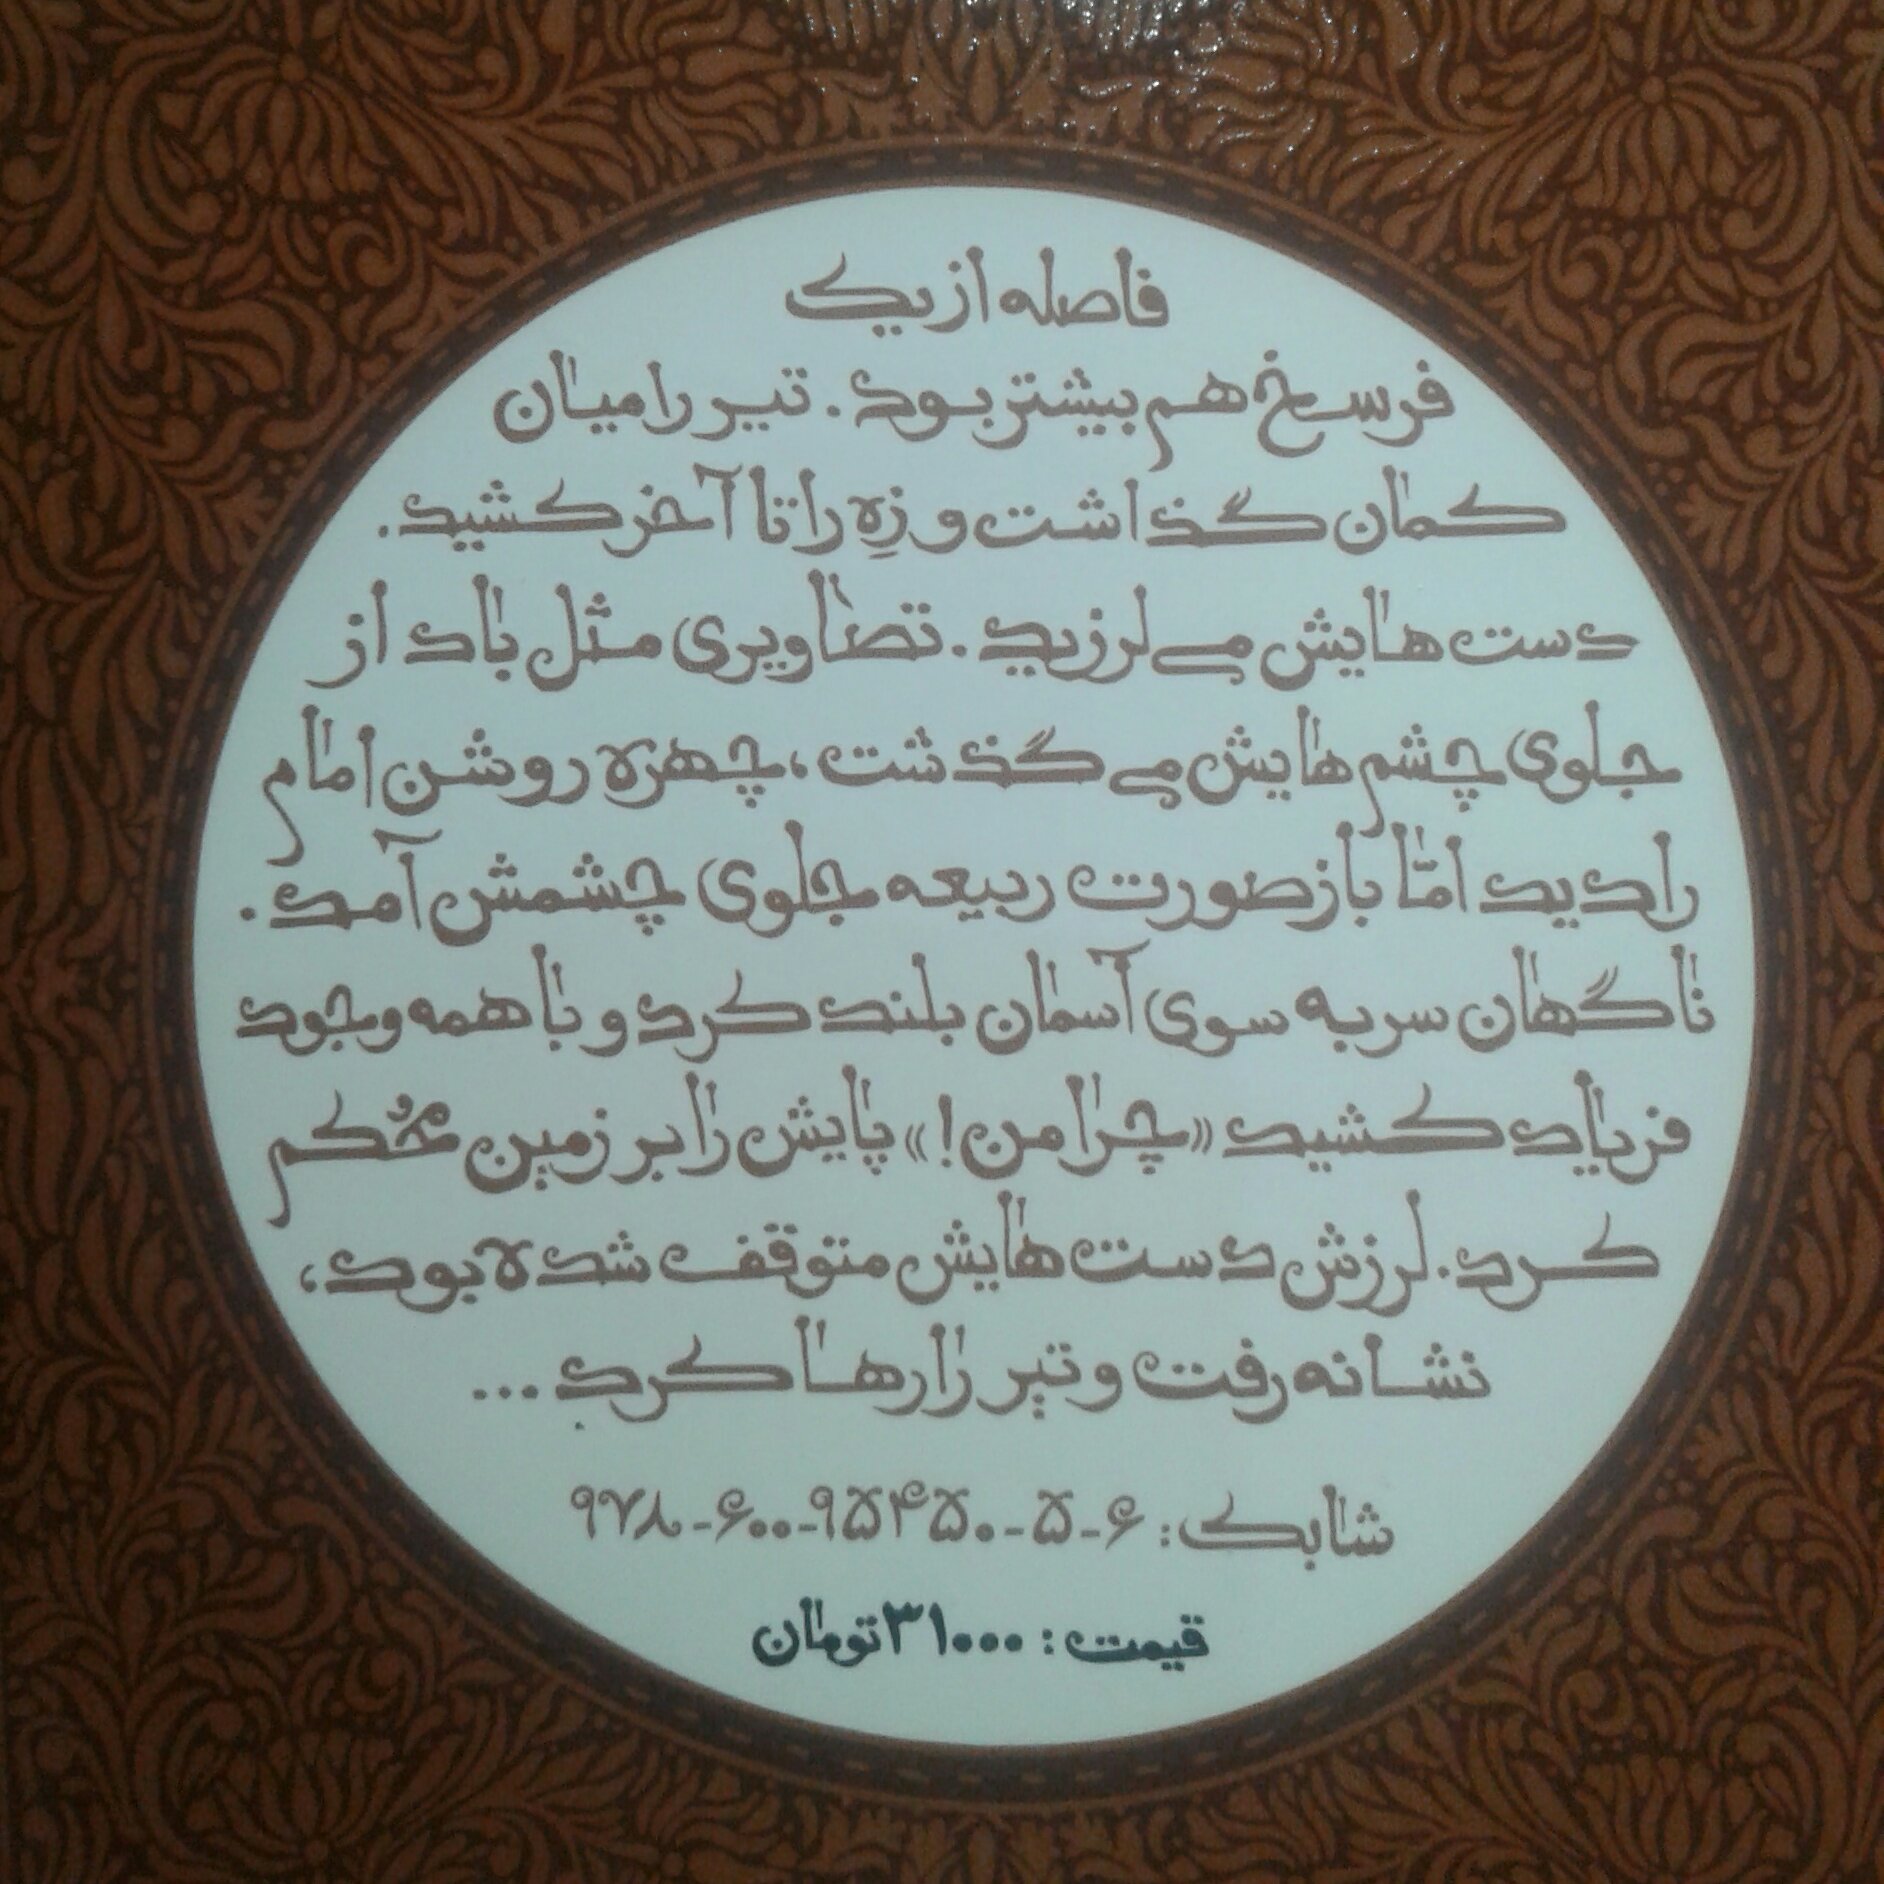 فاصله از یک
فرسخ هم بیشتر بود. تیر را میان
کمان گذاشت و زِه را تا آخر کشید.
دست‌هایش می‌لرزید. تصاویری مثل باد از
جلوی چشم‌هایش می‌گذشت، چهره روشن امام
را دید امّا باز صورت ربیعه جلوی چشمش آمد.
ناگهان سر به سوی آسمان بلند کرد و با همه وجود
فریاد کشید «چرا من!» پایش را بر زمین مُحکم
کرد. لرزش دست‌هایش متوقف شده بود،
نشانه رفت و تیر را رها کرد ...
شابک: ۶-۵-۹۵۴۵۰-۶۰۰-۹۷۸
قیمت: ۳۱۰۰۰ تومان